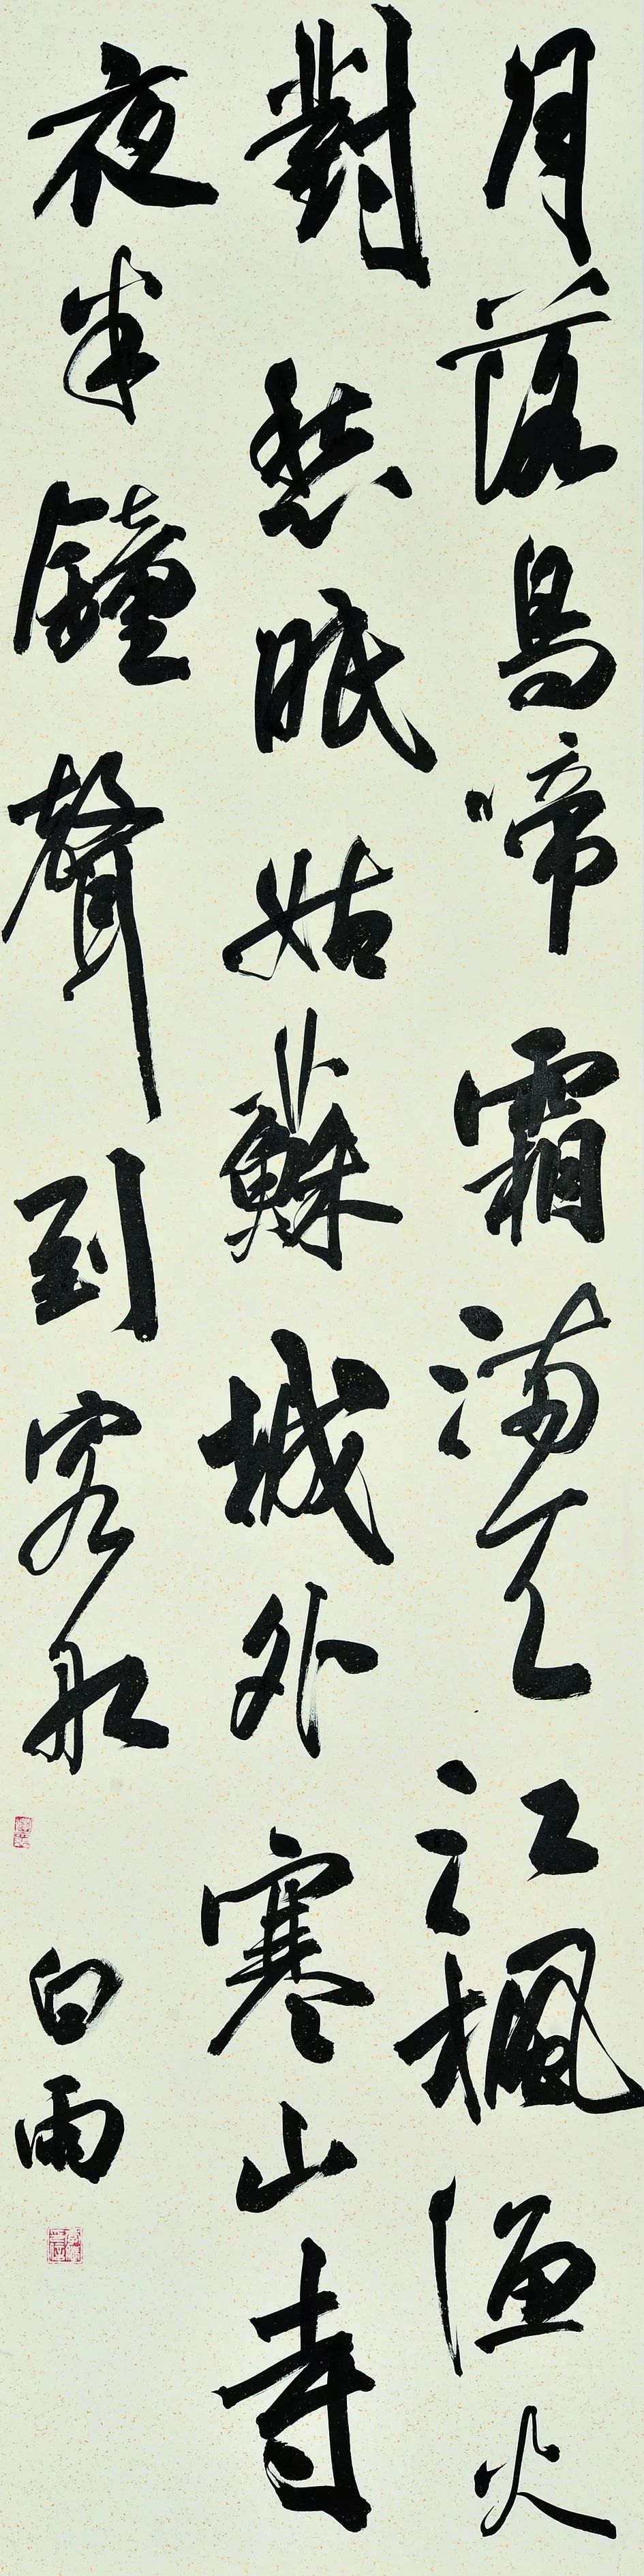 月落烏啼霜滿天江楓漁火
對愁眠姑蘇城外寒山寺
夜半鐘聲到客船
白雨